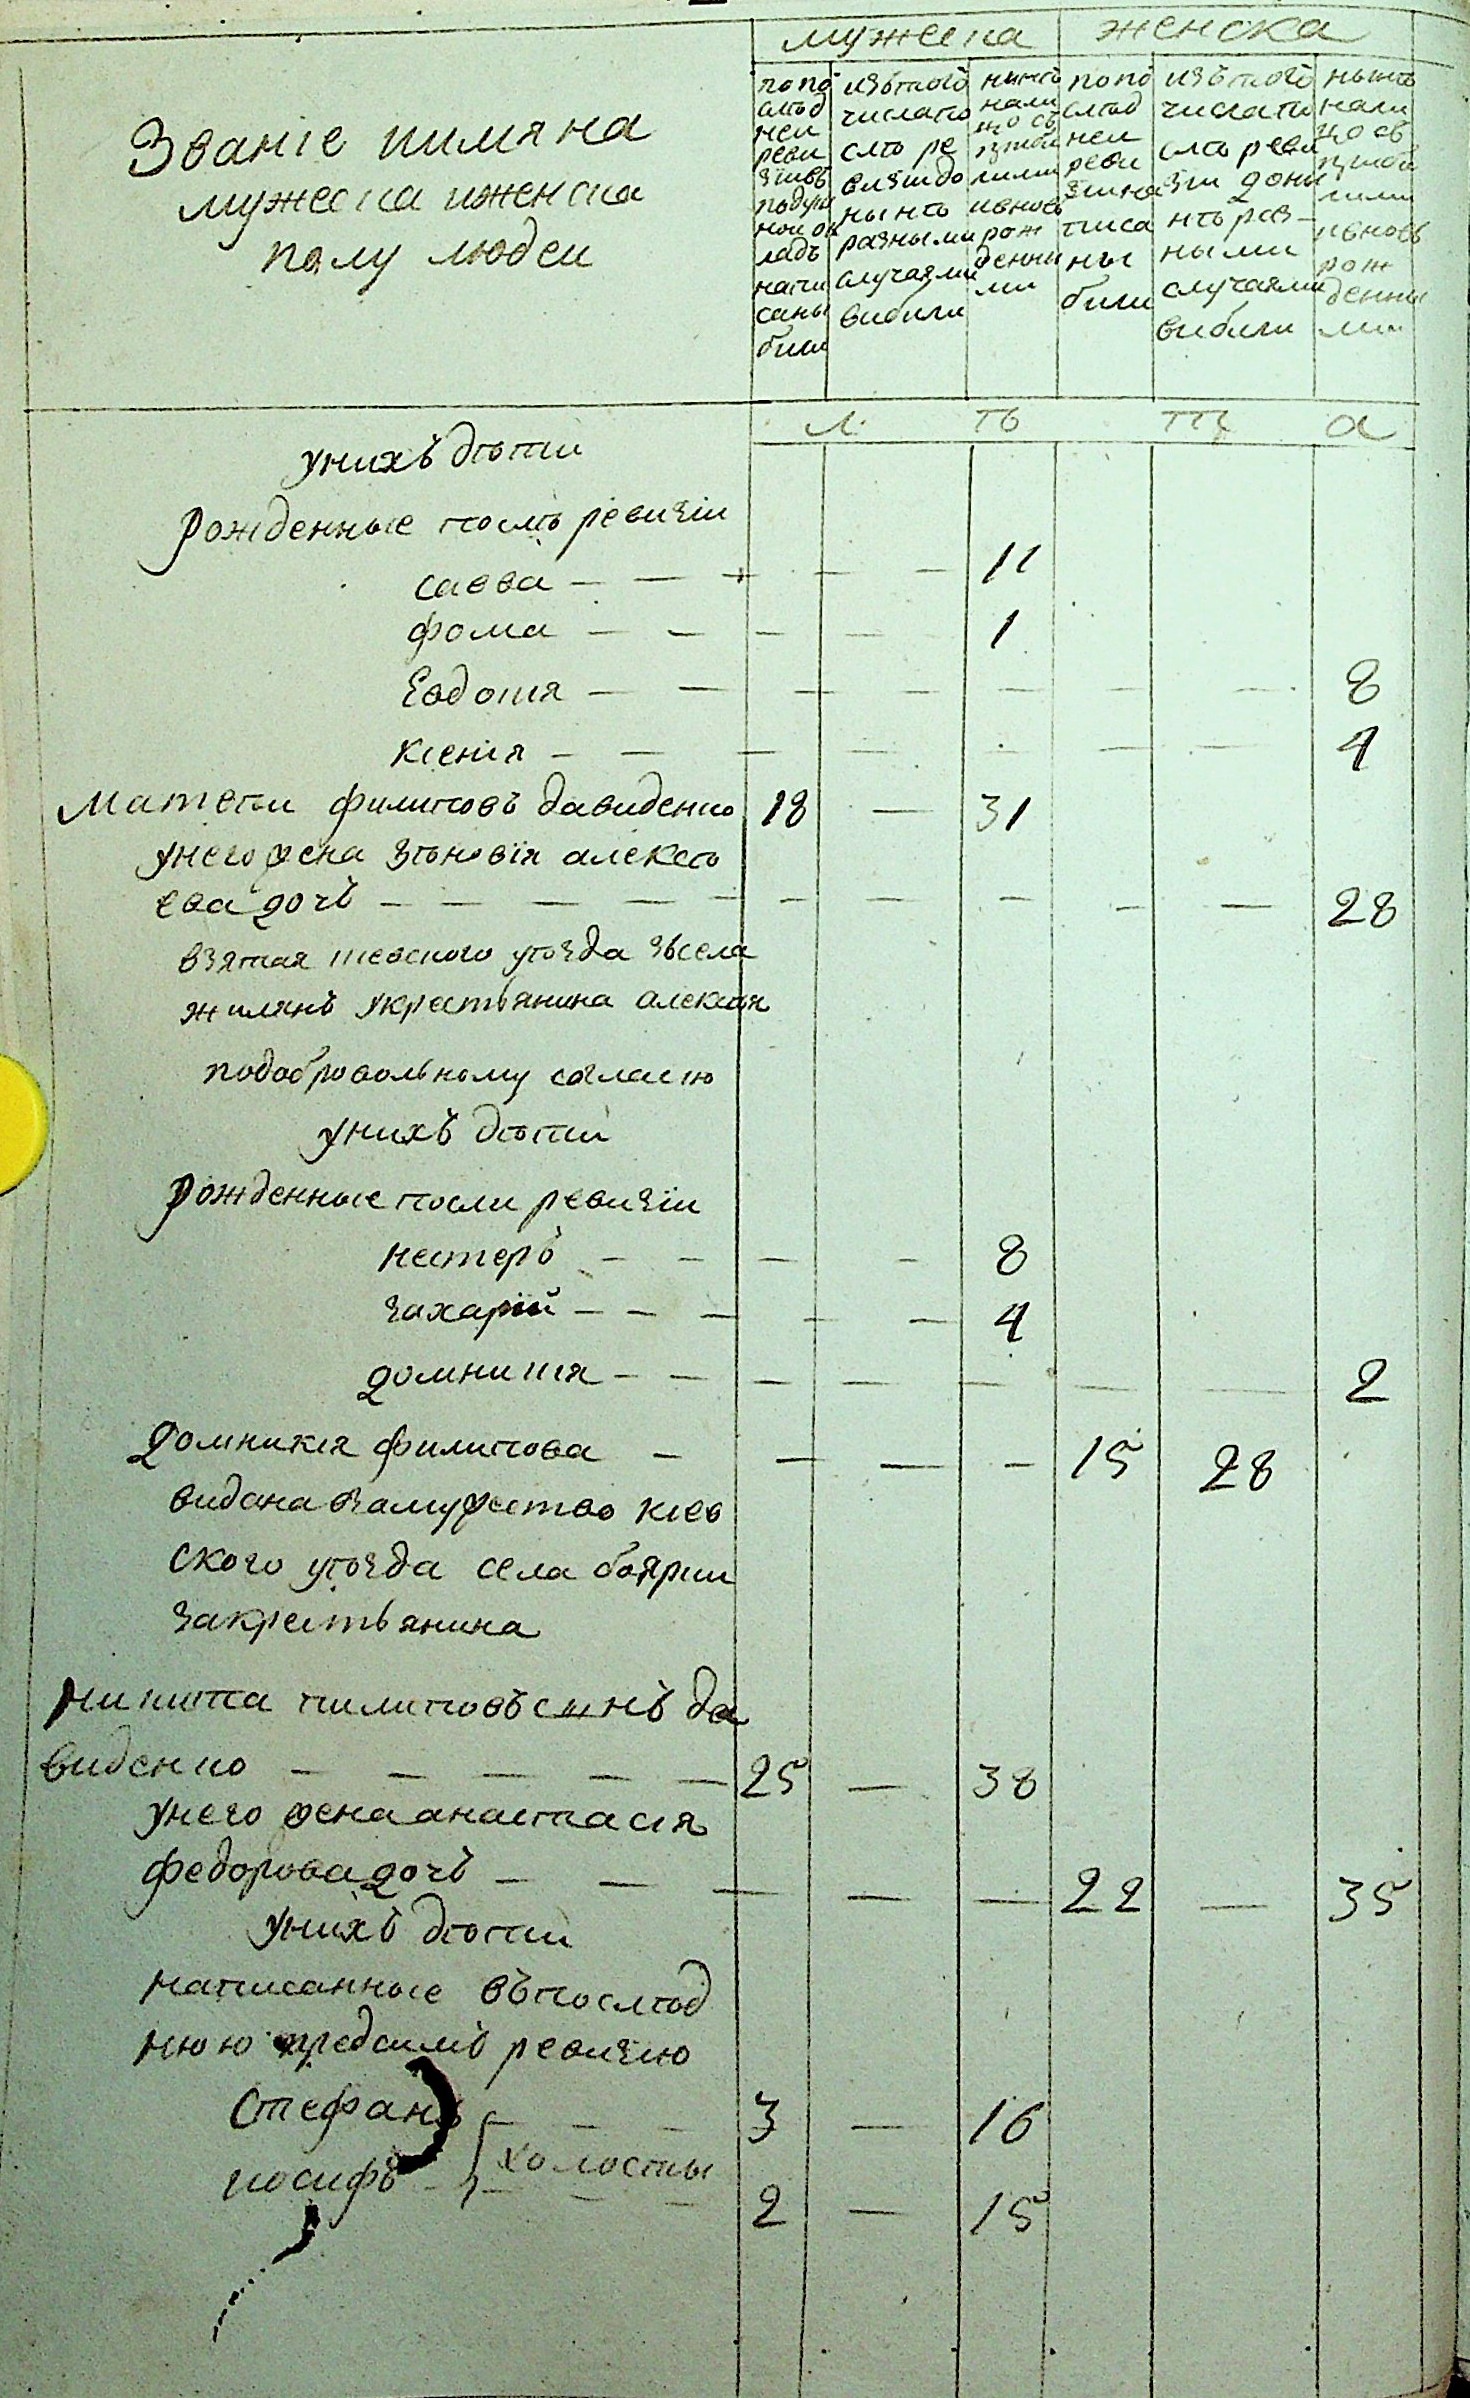 мужеска женска
Званіе иимяна
мужеска иженска
полу людеи
попо
слѣд
неи
реви
зіивъ
подуш
нои ок
ладъ
напи
саны
били
изътого
числапо
слѣ ре
визіидо
нынѣ
разными
случаями
вибили
нынѣ
нали
цо съ
прибы
лими
ивновь
рож
денны
ми
попо
слѣд
неи
реви
зіина
писа
ны
били
изътого
числапо
слѣ реви
зіи дони
нѣ раз
ными
случаями
вибили
нынѣ
нали
цо съ
прибы
лими
ивновь
рож
денны
ми
л ѣ т а
унихъ дѣти
рожденные послѣ ревизіи
савва — — — — — 11
фома — — — — 1
Евдокія — — — — — — — 8
ксенія — — — — — — — 4
Матеѣи филиповъ давиденко 18 — 31
унего жена зѣновія алексѣ
ева дочь — — — — — — — — — — — 28
взятая кіевского уѣзда зьсела
жилянъ укрестьянина алексѣя
подобровольному согласію
унихъ дѣти
рожденные посли ревизіи
нестеръ — — — — 8
захарій — — — — — 4
домникія — — — — — — — 2
Домникія филипова — — — — 15 28
видана взамужество кіев
ского уѣзда села боярки
закрестьянина
никита пилиповъ синъ да
виденко — — — — — 25 — 38
унего жена анастасія
федорова дочь — — — — — 22 — 35
унихъ дѣти
написанные въпослѣд
нюю предсимъ ревизію
Стефанъ — — — 3 — 16
холосты
иосифъ — — — 2 — 15